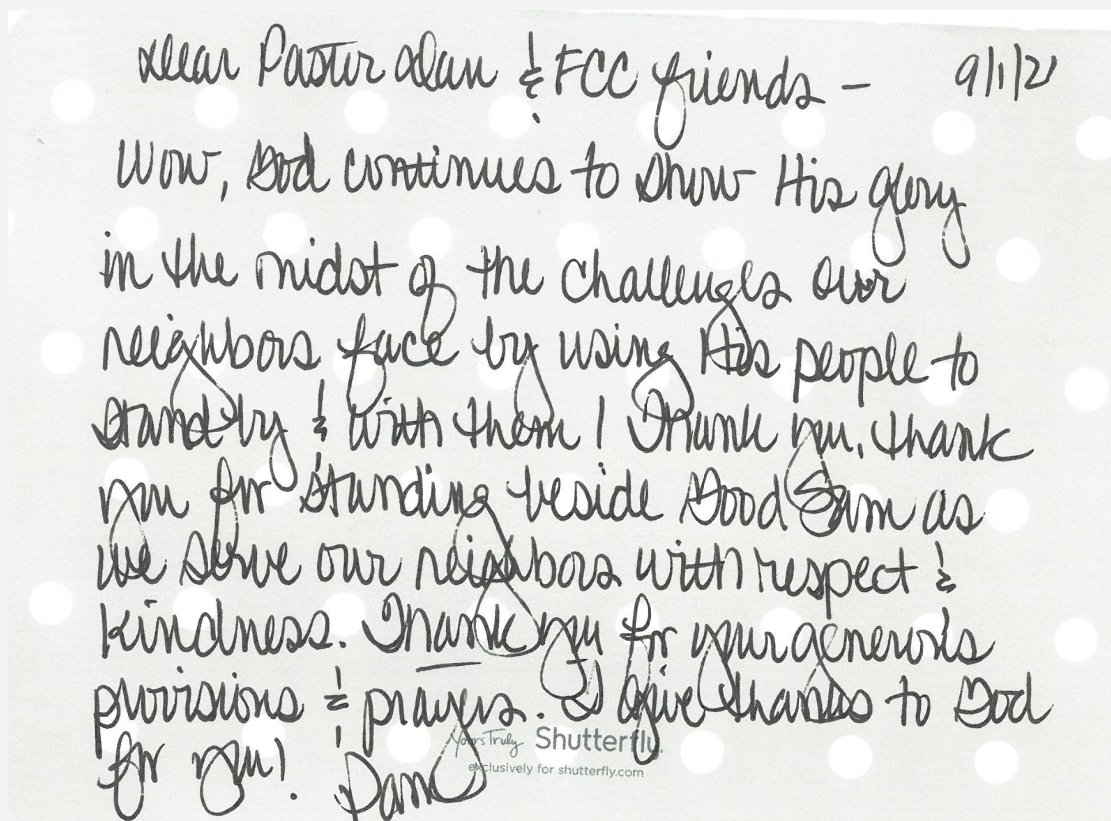 Dear Pastor Dan & FCC friends – 9/1/21
Wow, God continues to show His glory
in the midst of the challenges our
neighbors face by using His people to
stand by & with them! Thank you, thank
you for standing beside Good Sam as
we serve our neighbors with respect &
kindness. Thank you for your generous
provisions & prayers. I give thanks to God
for you! Pam
Yours Truly Shutterfly
exclusively for shutterfly.com